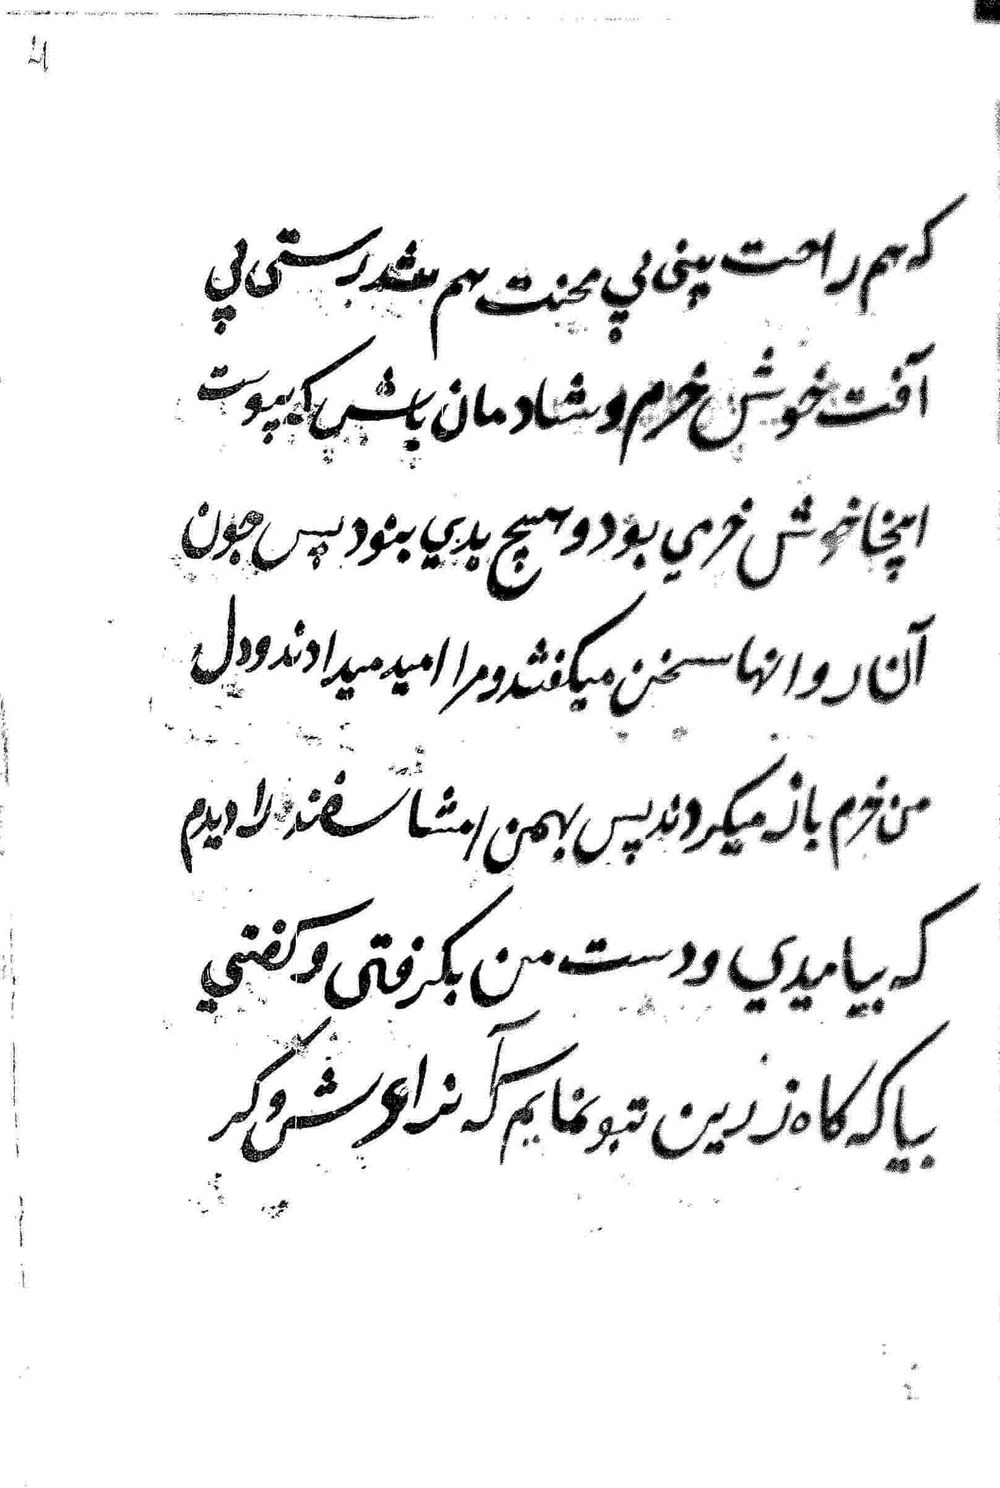 که هم راحت بینی بی محنت هم تندرستی بی
آفت خوش خرم و شادمان باش که پیوست
اینجا خوش خرمي بود و هیچ بدي بنود پس چون
آن روانها سخن میکفتند و مرا امید میدادند و دل
من خرم باز میکردند پس بهمن امشاسفند را دیدم
که بیامیدي و دست من بکرفتی و کفتي
بیا که کاه زرین تبو نمایم که